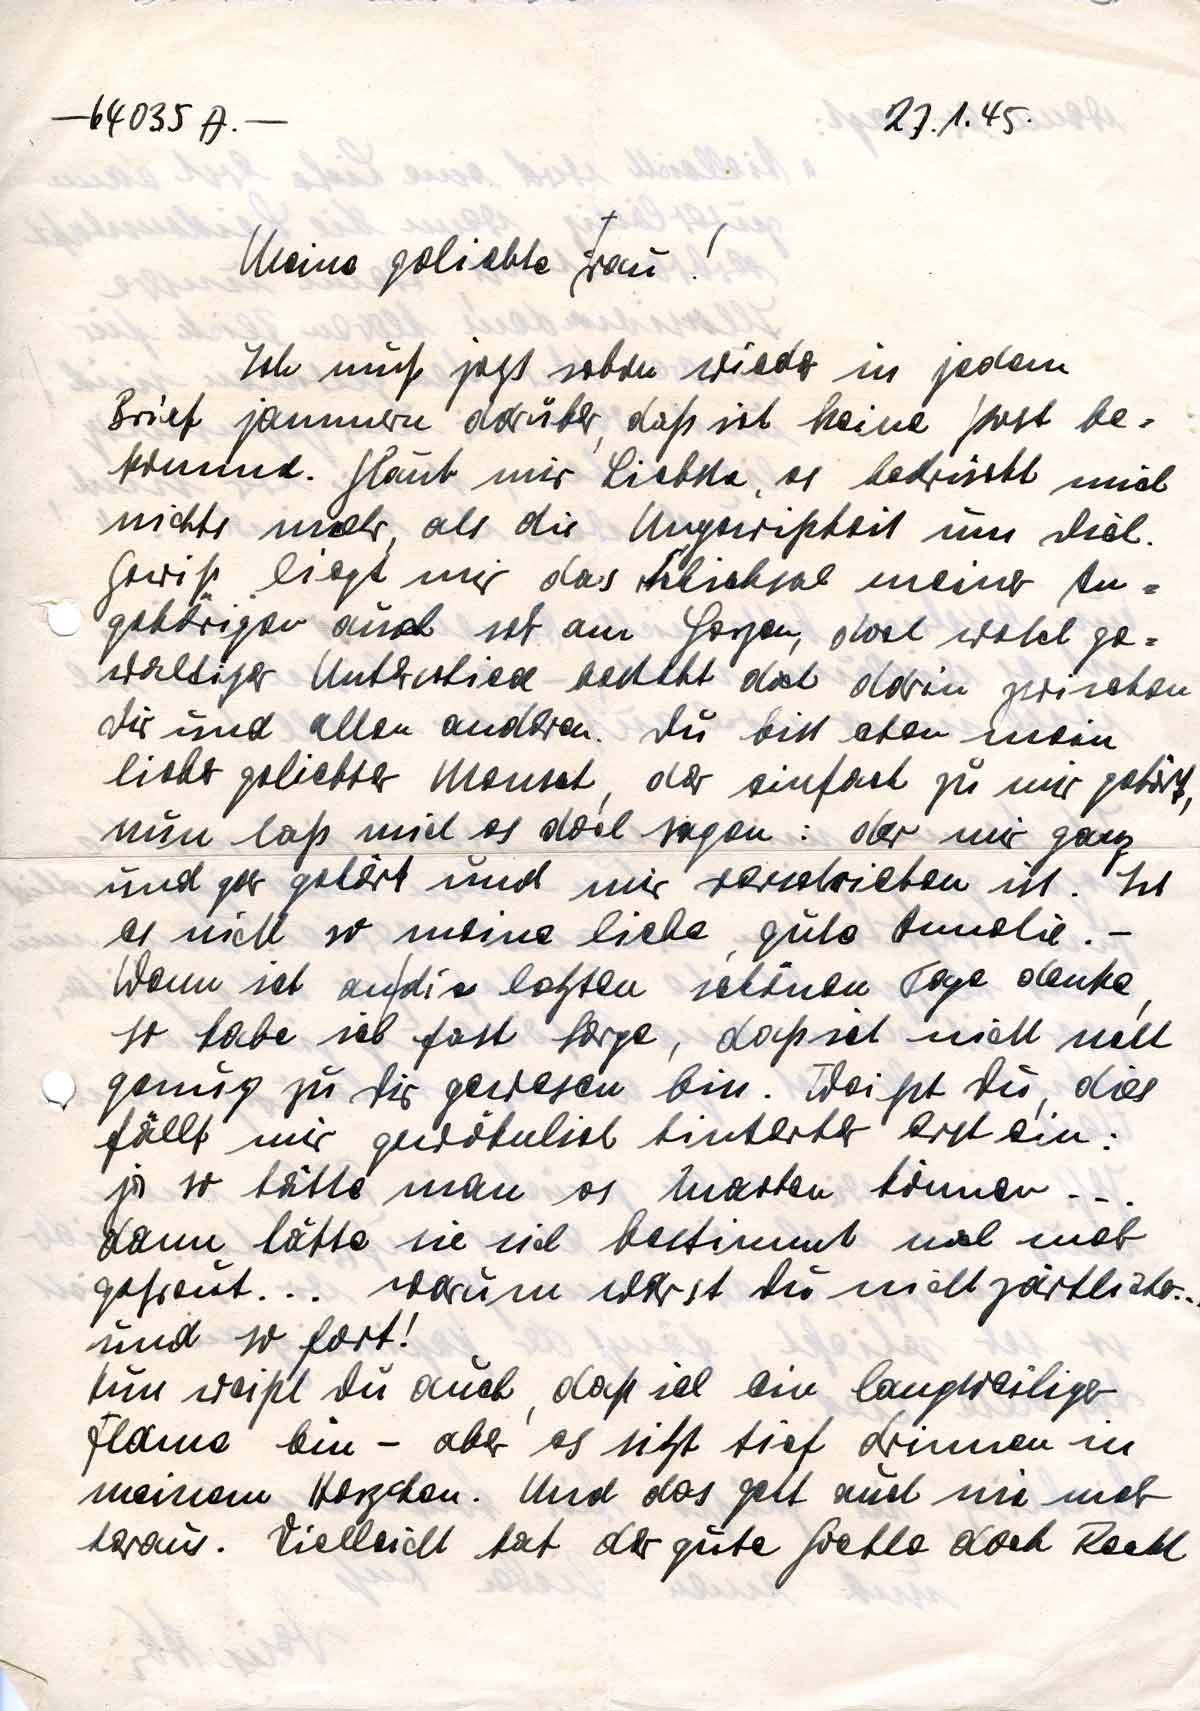 —64035 A.—
27.1.45.
Meine geliebte Frau!
Ich muß jetzt schon wieder in jedem
Brief jammern darüber, daß ich keine Post be-
komme. Glaub mir Liebste, es bedrückt mich
nichts mehr, als die Ungewißheit um Dich.
Gewiß liegt mir das Schicksal meiner An-
gehörigen auch sehr am Herzen, doch wohl ge-
waltiger Unterschied besteht doch darin zwischen
Dir und allen anderen. Du bist eben mein
lieber geliebter Mensch, der einfach zu mir gehört,
nun laß mich es doch sagen: der mir ganz
und gar gehört und mir verschrieben ist. Ist
es nicht so meine liebe, gute Annelie. –
Wenn ich an die letzten schönen Tage denke,
so habe ich fast Sorge, daß ich nicht nett
genug zu Dir gewesen bin. Weißt Du, dies
fällt mir gewöhnlich hinterher erst ein:
ja so hätte man es machen können ...
dann hätte sie sich bestimmt noch mehr
gefreut... warum warst Du nicht zärtlicher...
und so fort!
Nun weißt Du auch, daß ich ein langweiliger
Flame bin – aber es sitzt tief drinnen in
meinem Herzchen. Und das geht auch nie mehr
heraus. Vielleicht hat der gute Goethe doch Recht